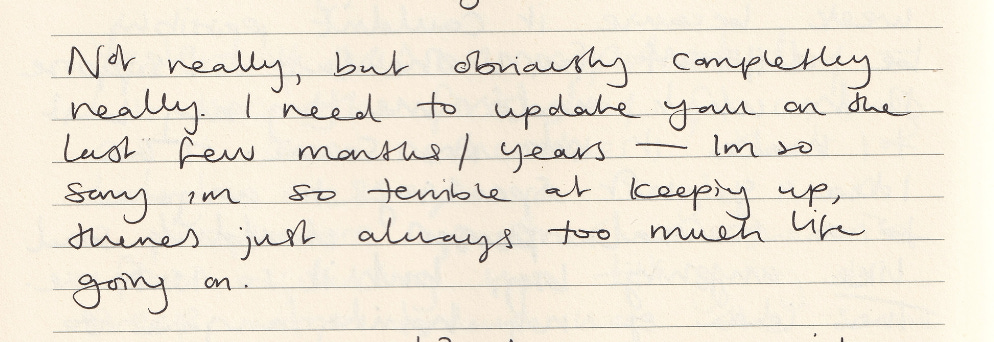 Not really, but obviously completley
really. I need to update you on the
last few months/years — Im so
sorry im so terrible at keeping up,
theres just always too much life
going on.